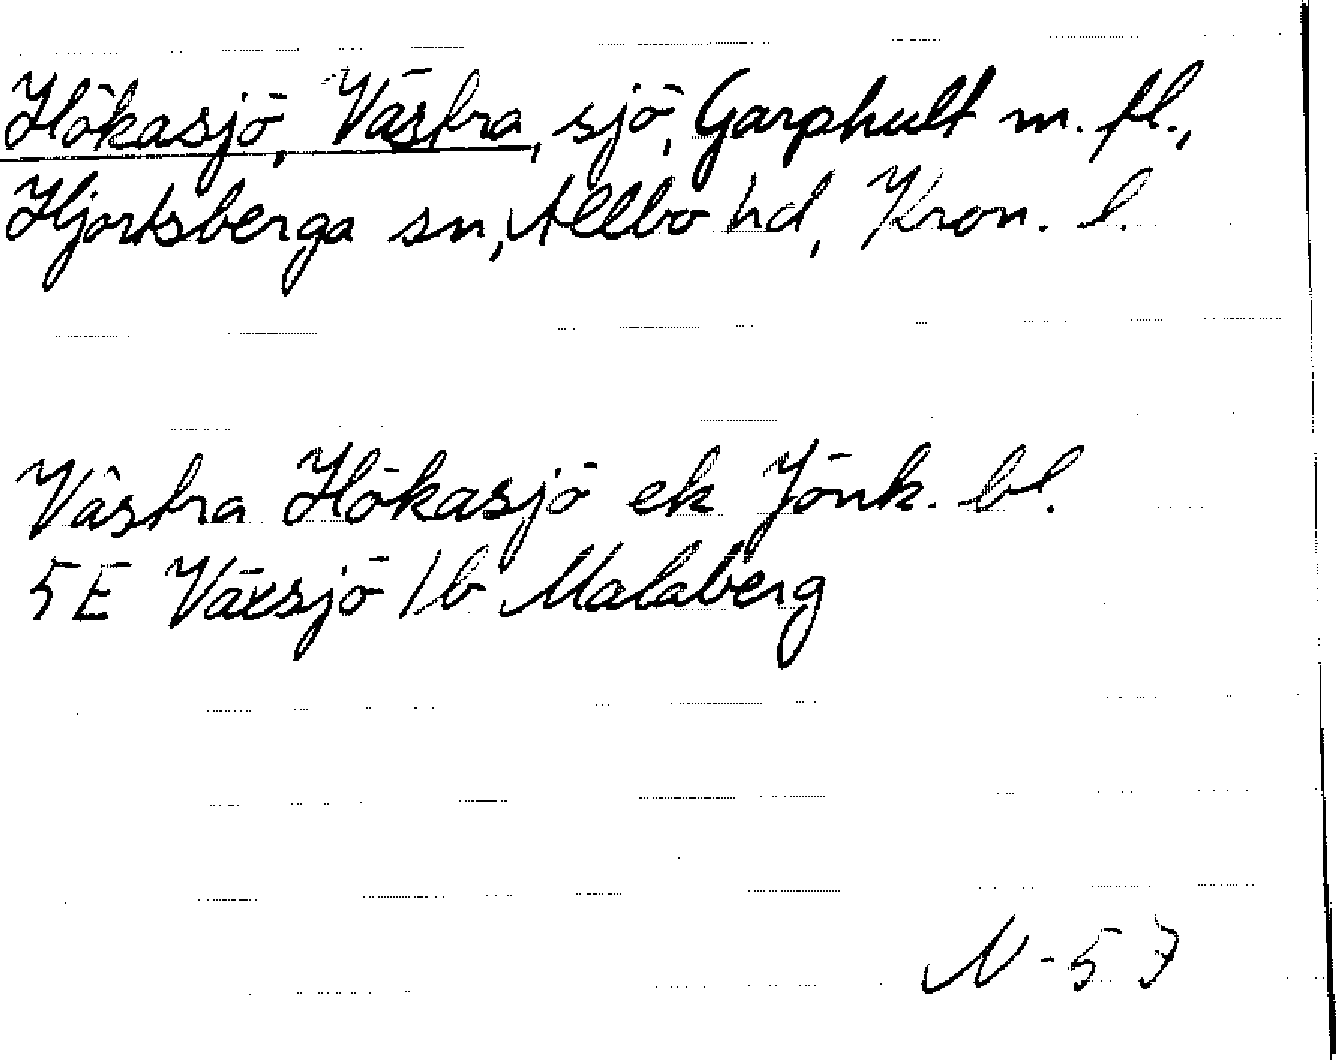 Hökasjö, Västra, sjö, Garphult m. fl.,
Hjortsberga sn, Allbo hd, Kron. l.
Västra Hökasjö ek Jönk. bl.
5E Växsjö 1b Malaberg
N-53